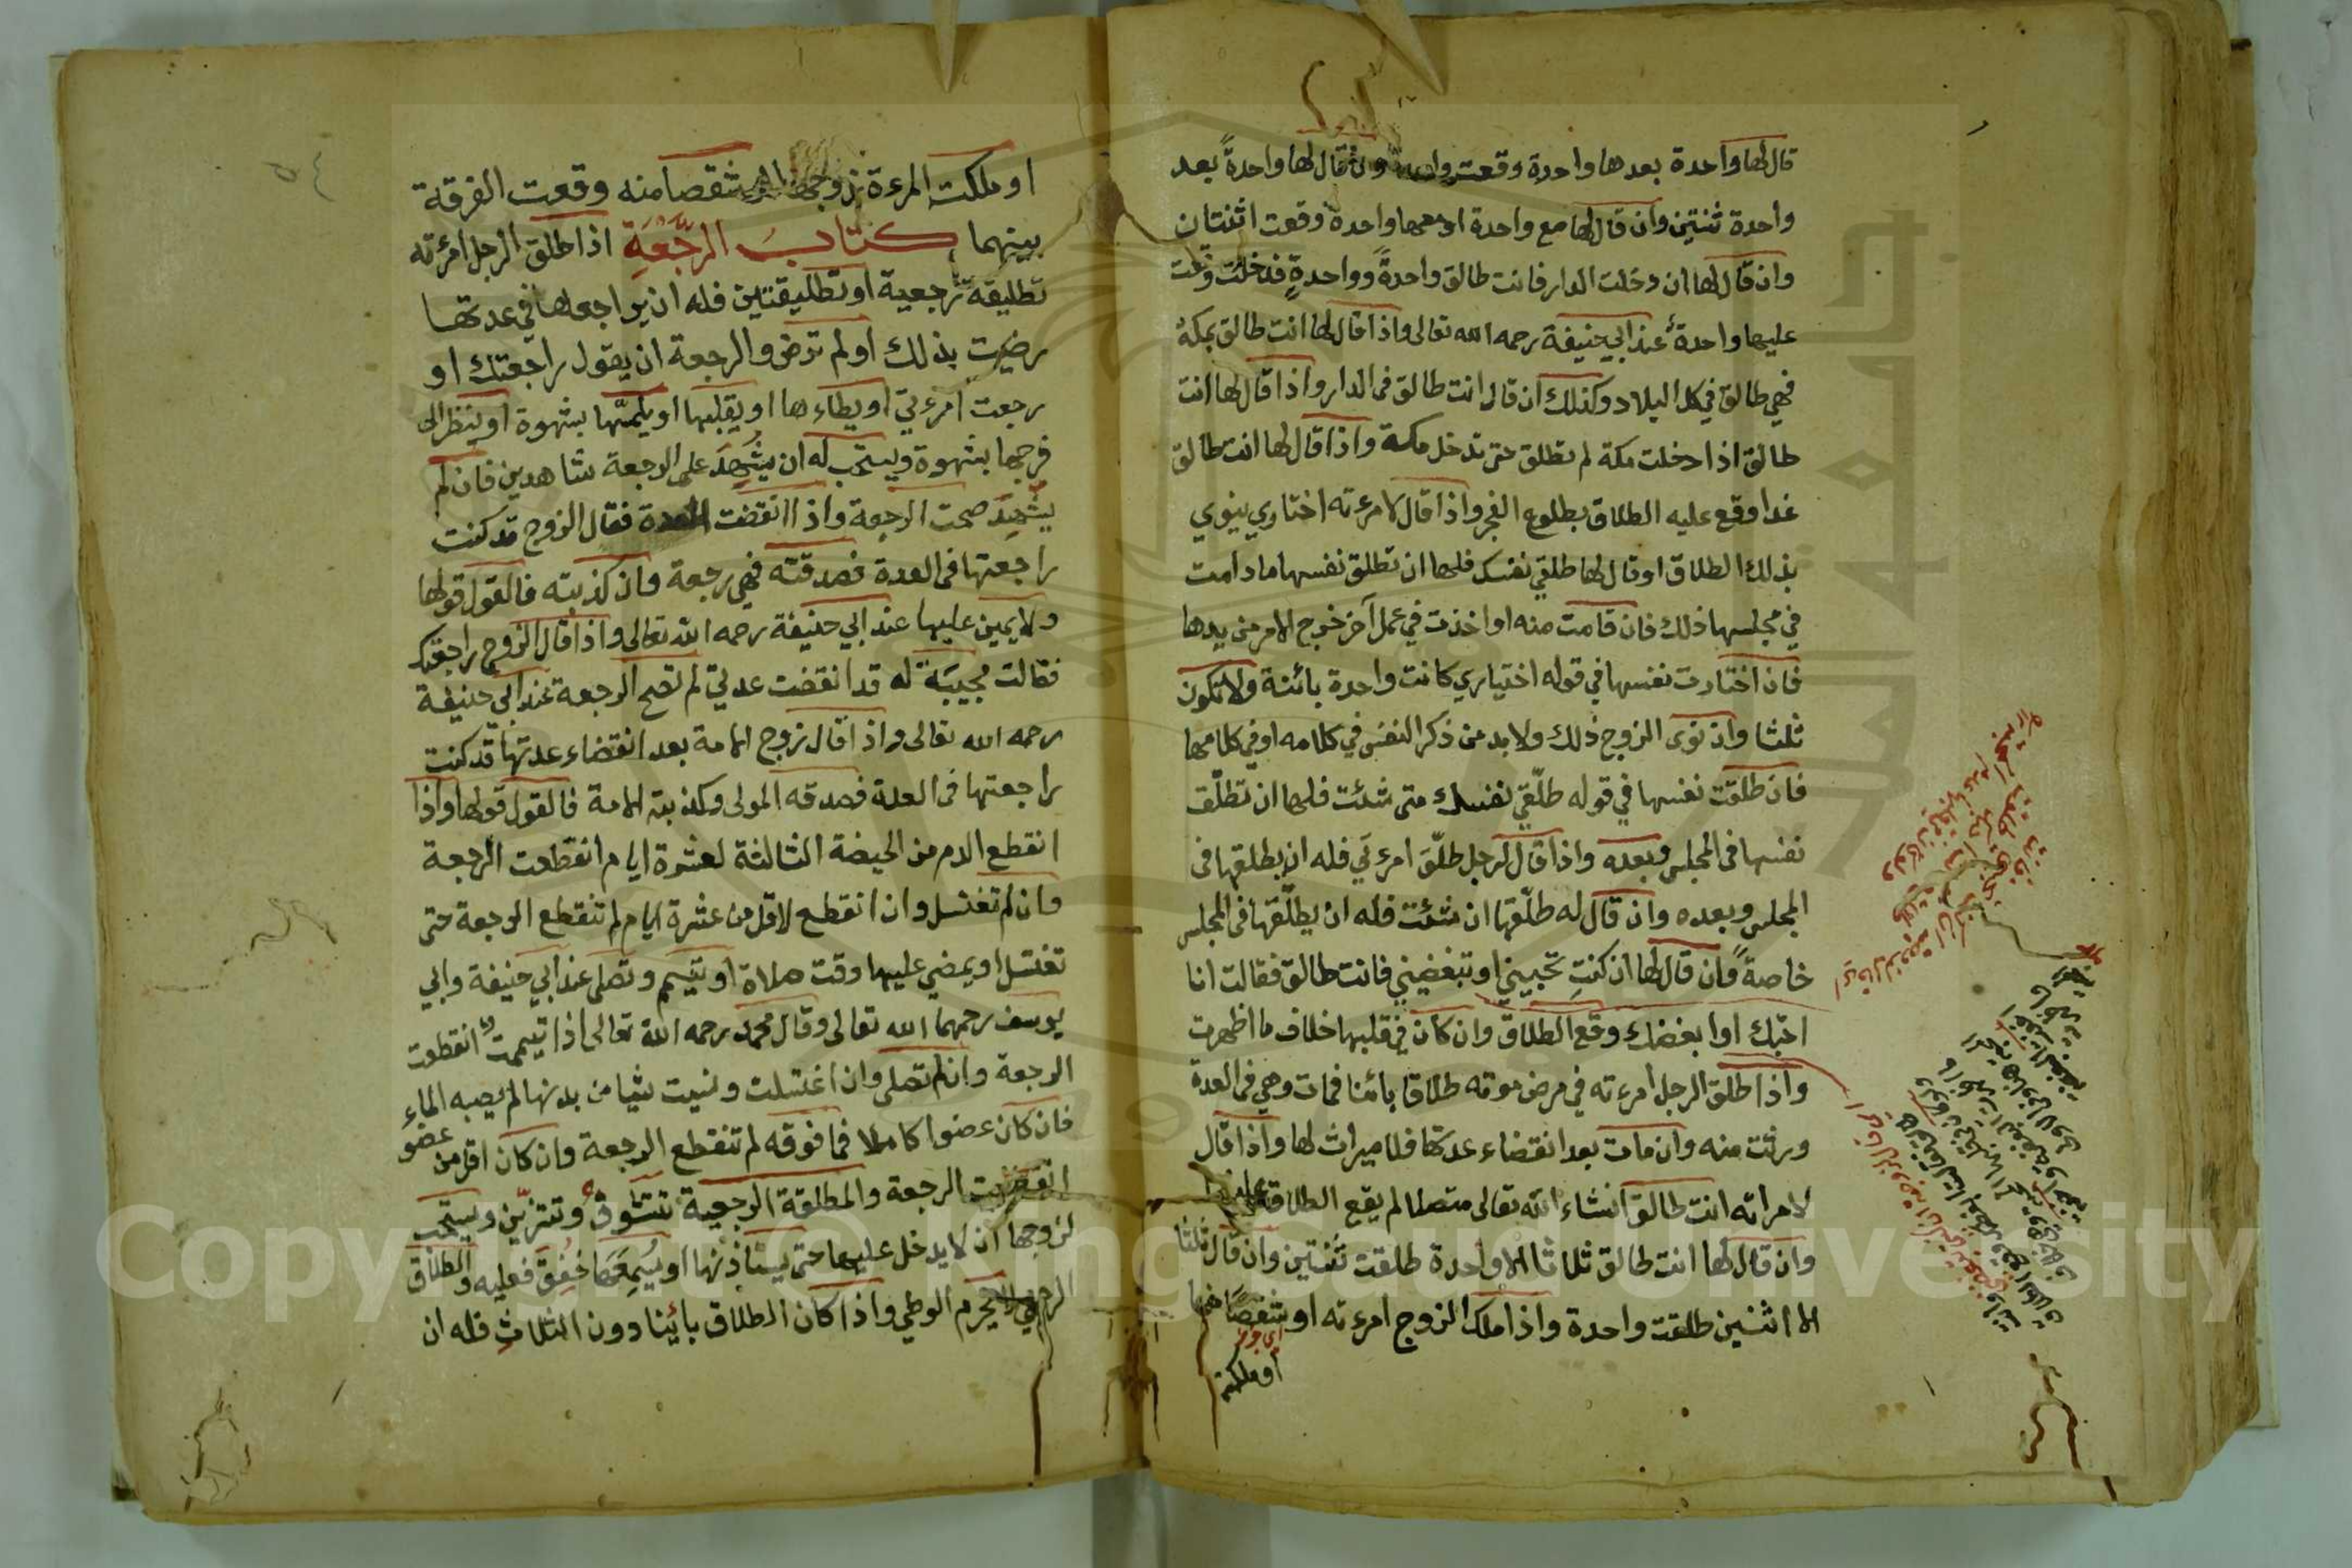 قال لها واحدة بعدها واحدة وقعت واحدة وان قال لها واحدةً بعد
واحدة ثنتين وان قال لها مع واحدة او معها واحدة وقعت اثنتان
وان قال لها ان دخلت الدار فانت طالق واحدةً وواحدةٍ فدخلت وقعت
عليها واحدة عند ابي حنيفة رحمه الله تعالى واذا قال لها انت طالق بمكة
فهي طالق في كل البلاد وكذلك ان قال انت طالق في الدار واذا قال لها انت
طالق اذا دخلت مكة لم تطلق حتى تدخل مكة واذا قال لها انت طالق
غدا وقع عليه الطلاق بطلوع الفجر واذا قال لامرءته اختاري ينوي
بذلك الطلاق او قال لها طلقي نفسك فلها ان تطلق نفسها ما دامت
في مجلسها ذلك فان قامت منه او اخذت في عمل آخر خرج الامر من يدها
فان اختارت نفسها في قوله اختياري كانت واحدة بائنة ولا تكون
ثلثا وان نوى الزوج ذلك ولا بد من ذكر النفس في كلامه او في كلامها
فان طلقت نفسها في قوله طلّقي نفسك متى شئت فلها ان تطلّق
نفسها في المجلس وبعده واذا قال لرجل طلّق امرءتي فله ان يطلقها في
المجلس وبعده وان قال له طلّقها ان شئت فله ان يطلّقها في المجلس
خاصةً وان قال لها ان كنتِ تحبيني او تبغضيني فانت طالق فقالت انا
احبّك او ابغضك وقع الطلاق وان كان في قلبها خلاف ما اظهرت
واذا طلق الرجل امرءته في مرض موته طلاقا بائنا فمات وهي في العدة
ورثت منه وان مات بعد انقضاء عدتها فلا ميراث لها واذا قال
لامراته انت طالق انشاء الله تعالى متصلا لم يقع الطلاق عليها
وان قال لها انت طالق ثلاثا الا واحدة طلقت ثنتين وان قال ثلثا
الا اثنين طلقت واحدة واذا ملك الزوج امرءته او شقصًا منها
اي جزء
او ملكت
او ملكت المرءة زوجها او شقصا منه وقعت الفرقة
بينهما كتاب الرَّجْعَةِ اذا طلق الرجل امرءته
تطليقة رجعية او تطليقتين فله ان يراجعها في عدتها
رضيت بذلك او لم ترض والرجعة ان يقول راجعتك او
رجعت امرءتي او يطاءها او يقبلها او يلمسّها بشهوة او ينظر الى
فرجها بشهوة ويستحب له ان يُشْهِدَ على الرجعة شاهدين فان لم
يُشْهِدَ صحت الرجعة واذا انقضت العدة فقال الزوج قد كنت
راجعتها في العدة فصدقته فهي رجعة وان كذبته فالقول قولها
ولا يمين عليها عند ابي حنيفة رحمه الله تعالى واذا قال الزوج راجعتك
فقالت مجيبَةً له قد انقضت عدتي لم تصح الرجعة عند ابي حنيفة
رحمه الله تعالى واذا قال زوج الامة بعد انقضاء عدتها قد كنت
راجعتها في العدة فصدقه المولى وكذبته الامة فالقول قولها واذا
انقطع الدم من الحيضة الثالثة لعشرة ايام انقطعت الرجعة
وان لم تغتسل وان انقطع لاقل من عشرة ايام لم تنقطع الرجعة حتى
تغتسل او يمضي عليها وقت صلاة او تتيمم وتصلى عند ابي حنيفة وابي
يوسف رحمهما الله تعالى وقال محمد رحمه الله تعالى اذا تيممت انقطعت
الرجعة وان لم تصلى وان اغتسلت ونسيت شيا من بدنها لم يصبه الماء
فان كان عضوا كاملا فما فوقه لم تنقطع الرجعة وان كان اقل من عضو
انقطعت الرجعة والمطلقة الرجعية تتشوّفُ وتتزيّن ويستحب
لزوجها ان لا يدخل عليها حتى يستاذنها او يُسْمِعَهَا خفق فعليه والطلاق
الرجعي لا يحرم الوطي واذا كان الطلاق بائينا دون الثلاثِ فله ان
Copyright © King Saud University